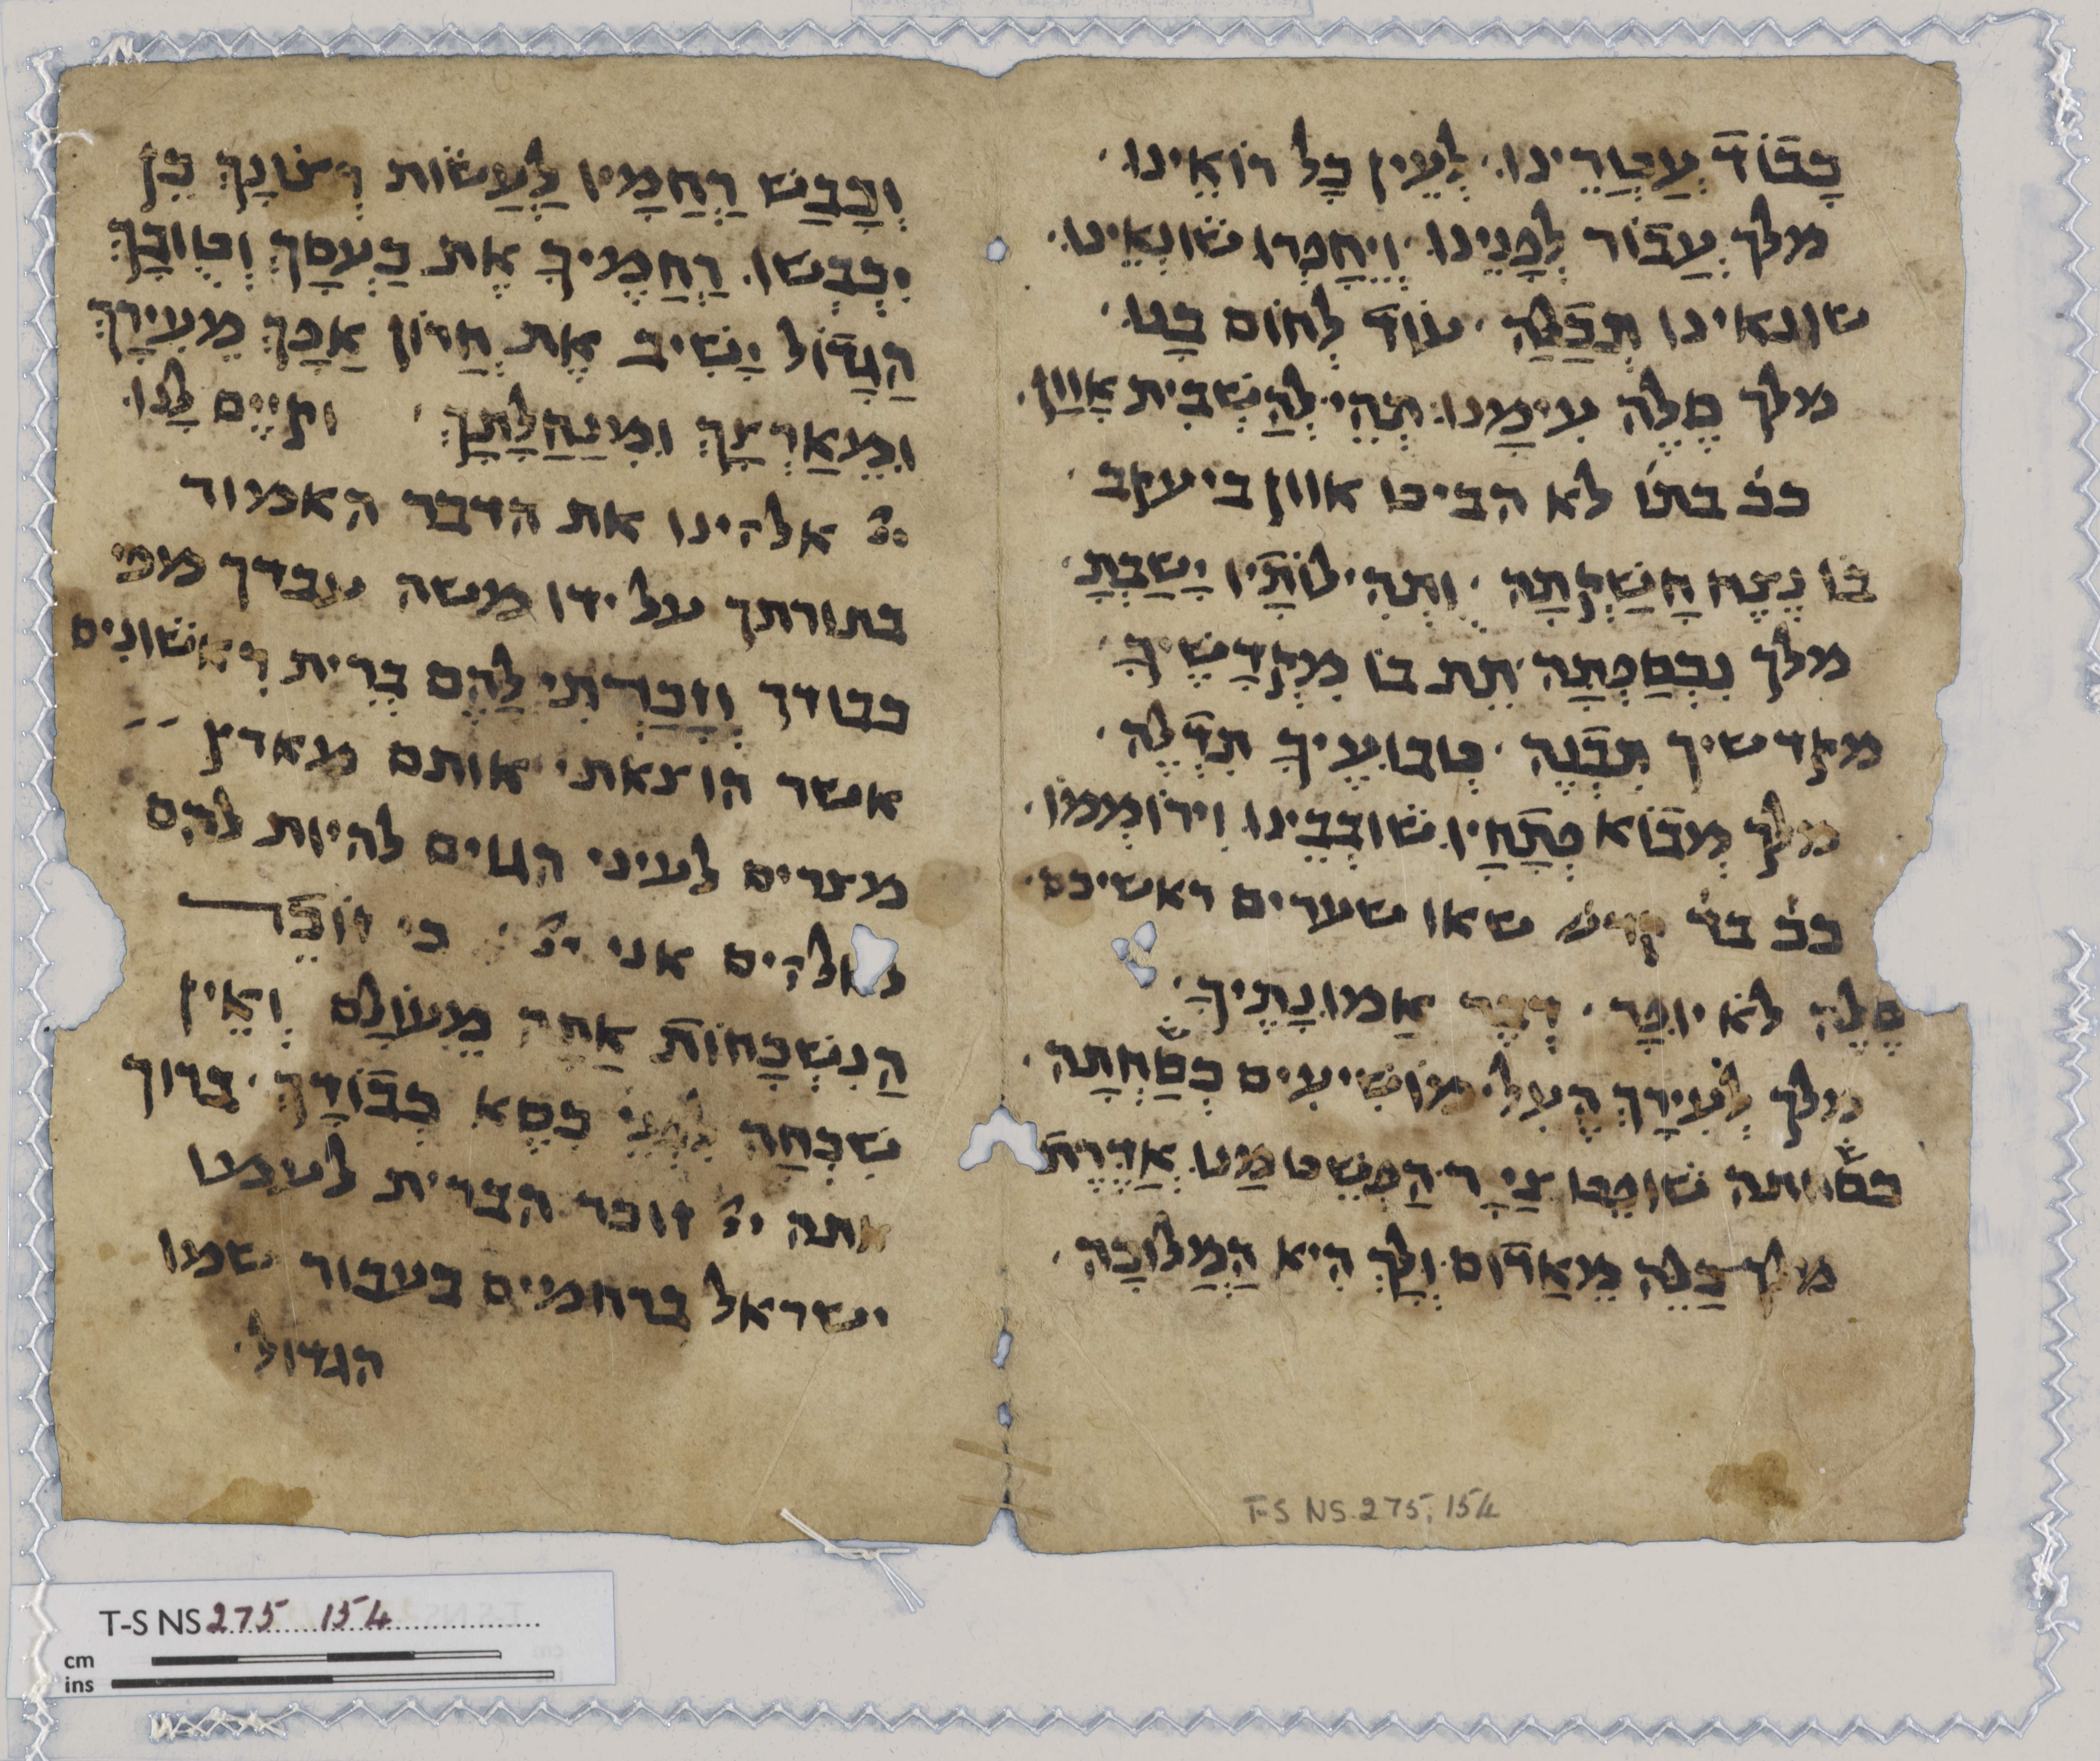 כָבֿוֹדֿ עֲטֲרֵינוּ · לְעֵין כָל רוֹאֵינוּ ·
מלך עֲבֿוֹר לְפָנֵינוּ · וְיֵחָפְרוּ שׂוֹנְאֵינוּ ·
שונאינו תְכַלֵה · עוֹדֿ לְחוֹם בָנוּ ·
מלך סֶלָה עִימָנוּ · תְהִי לְהַשְׁבִית אָוֶון ·
ככֿ בתוֹ לא הביט אוון ביעקב ·
בוֹ נֶצַח חָשַׁקְתָה · וְתְהִילוֹתָיו יָשַבְתָ ·
מלך נִכְסַפְתָה · תֵת בוֹ מִקְדָשֶיךָ ·
מקדשיך תִבְנֶה · טְבוּעֶיךָ תִדְלֶה ·
מלך מְבֿוֹא פְתָחָיו · שׁוֹבְבֵינוּ וִירוֹמְמוּ ·
ככֿ ברֿ קדש שאו שערים ראשיכם ·
סֶלָה לֹא יוּפָר · דְבַר אֱמוּנָתֶיךָ ·
מלך לְעִירָךְ הַעֲלִי מוֹשִיעִים כְסַחְתָה ·
כסחתה שׁוֹפֵט צַיָר הַפְשֵט מֶנוּ אַדֶרֶת
מלך כַלֵה מֵאֱדוֹם · וְלָךְ הִיא הַמְלוּכָה ·
וְכָבַשׁ רַחֲמָיו לַעֲשׂוֹת רְצוֹנָךְ כֵן
יִכְבְשׁוּ רַחֲמֶיךָ אֶת כַעְסָךְ וְטוּבָךְ
הַגָדוֹל יָשִׁיב אֶת חֲרוֹן אַפָךְ מֵעִירָךְ
וּמֵאַרְצָךְ וּמִנַחֲלָתָךְ · וקיים לנו
יי אלהינו את הדבר האמור
בתורתך על ידו משה עבדך מפי
כבודך וְזָכַרְתִי לָהֶם בְרִית רִאשׁוֹנִים
אשר הוצאתי אותם מארץ
מצרים לעיני הגוים להיות להם
לאלהים אני ייֿ · כי זוֹכֵר
הַנִשְׁכָחוֹת אַתָה מֵעוֹלָם וְאֵין
שִׁכְחָה לִפְנֵי כִסֵא כְבֿוֹדָךְ · ברוך
אתה ייֿ זוכר הברית לעמו
ישראל ברחמים בעבור שמו
הגדול ·
T-S NS.275.154
T-S NS 275 154
cm
ins